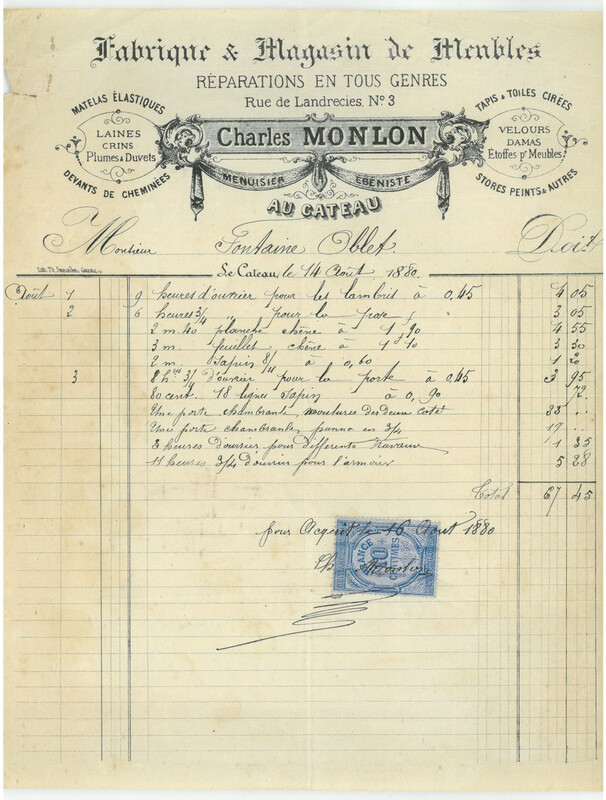 Fabrique & Magasin de Meubles
RÉPARATIONS EN TOUS GENRES
Rue de Landrecies, Nº 3
MATELAS ÉLASTIQUES
LAINES
CRINS
Plumes & Duvets
DEVANTS DE CHEMINÉES
Charles MONLON
MENUISIER ÉBÉNISTE
AU CATEAU
TAPIS & TOILES CIRÉES
VELOURS
DAMAS
Étoffes pr Meubles
STORES PEINTS & AUTRES
Monsieur Fontaine Oblet Doit
Le Cateau, le 14 Août 1880
Août 1 9 heures d'ouvrier pour les lambris à 0,45 4 05
2 6 heures 3/4 " pour la pose " 3 05
2 m. 40 planche chêne à 1,90 4 55
3 m. feuillet chêne à 1,10 3 30
2 m. Sapin 8/11 à 0,60 1 20
3 8 hres 3/4 d'ouvrier pour la porte à 0,45 3 95
80 cent. 18 lignes Sapin à 0,90 72
Une porte chambrante moulures des deux cotet 23 ..
Une porte chambrante, panno en 3/4 19 ..
3 heures d'ouvrier pour différents travaux 1 35
11 heures 3/4 d'ouvrier pour l'armoir 5 28
Total 67 45
pour Acquit le 16 Août 1880
Ch Monlon
FRANCE
10
CENTIMES